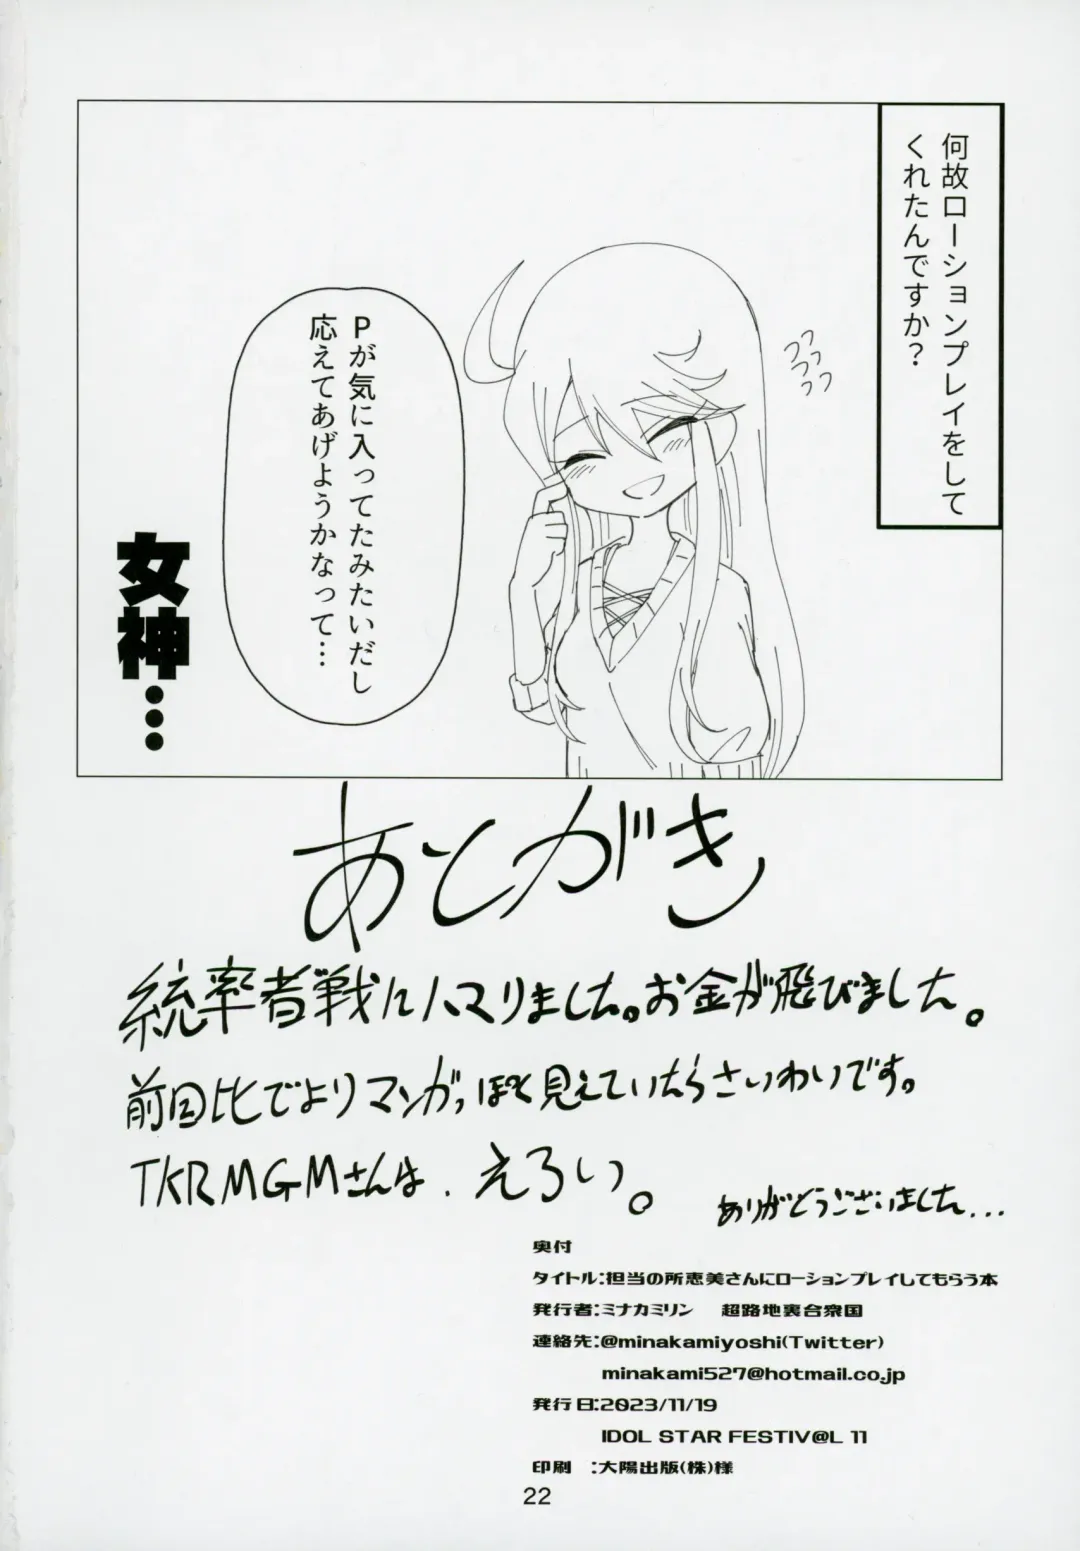 何故ローションプレイをして
くれたんですか？
フフ
フフ
フフ
Pが気に入ってたみたいだし
応えてあげようかなって…
女神…
あとがき
統率者戦にハマりました。お金が飛びました。
前回比でよりマンガっぽく見えていたらさいわいです。
TKRMGMさんは、えろい。
ありがとうございました...
奥付
タイトル:担当の所恵美さんにローションプレイしてもらう本
発行者:ミナカミリン　超路地裏合衆国
連絡先:@minakamiyoshi(Twitter)
minakami527@hotmail.co.jp
発行日:2023/11/19
IDOL STAR FESTIV@L 11
印刷　:大陽出版(株)様
22